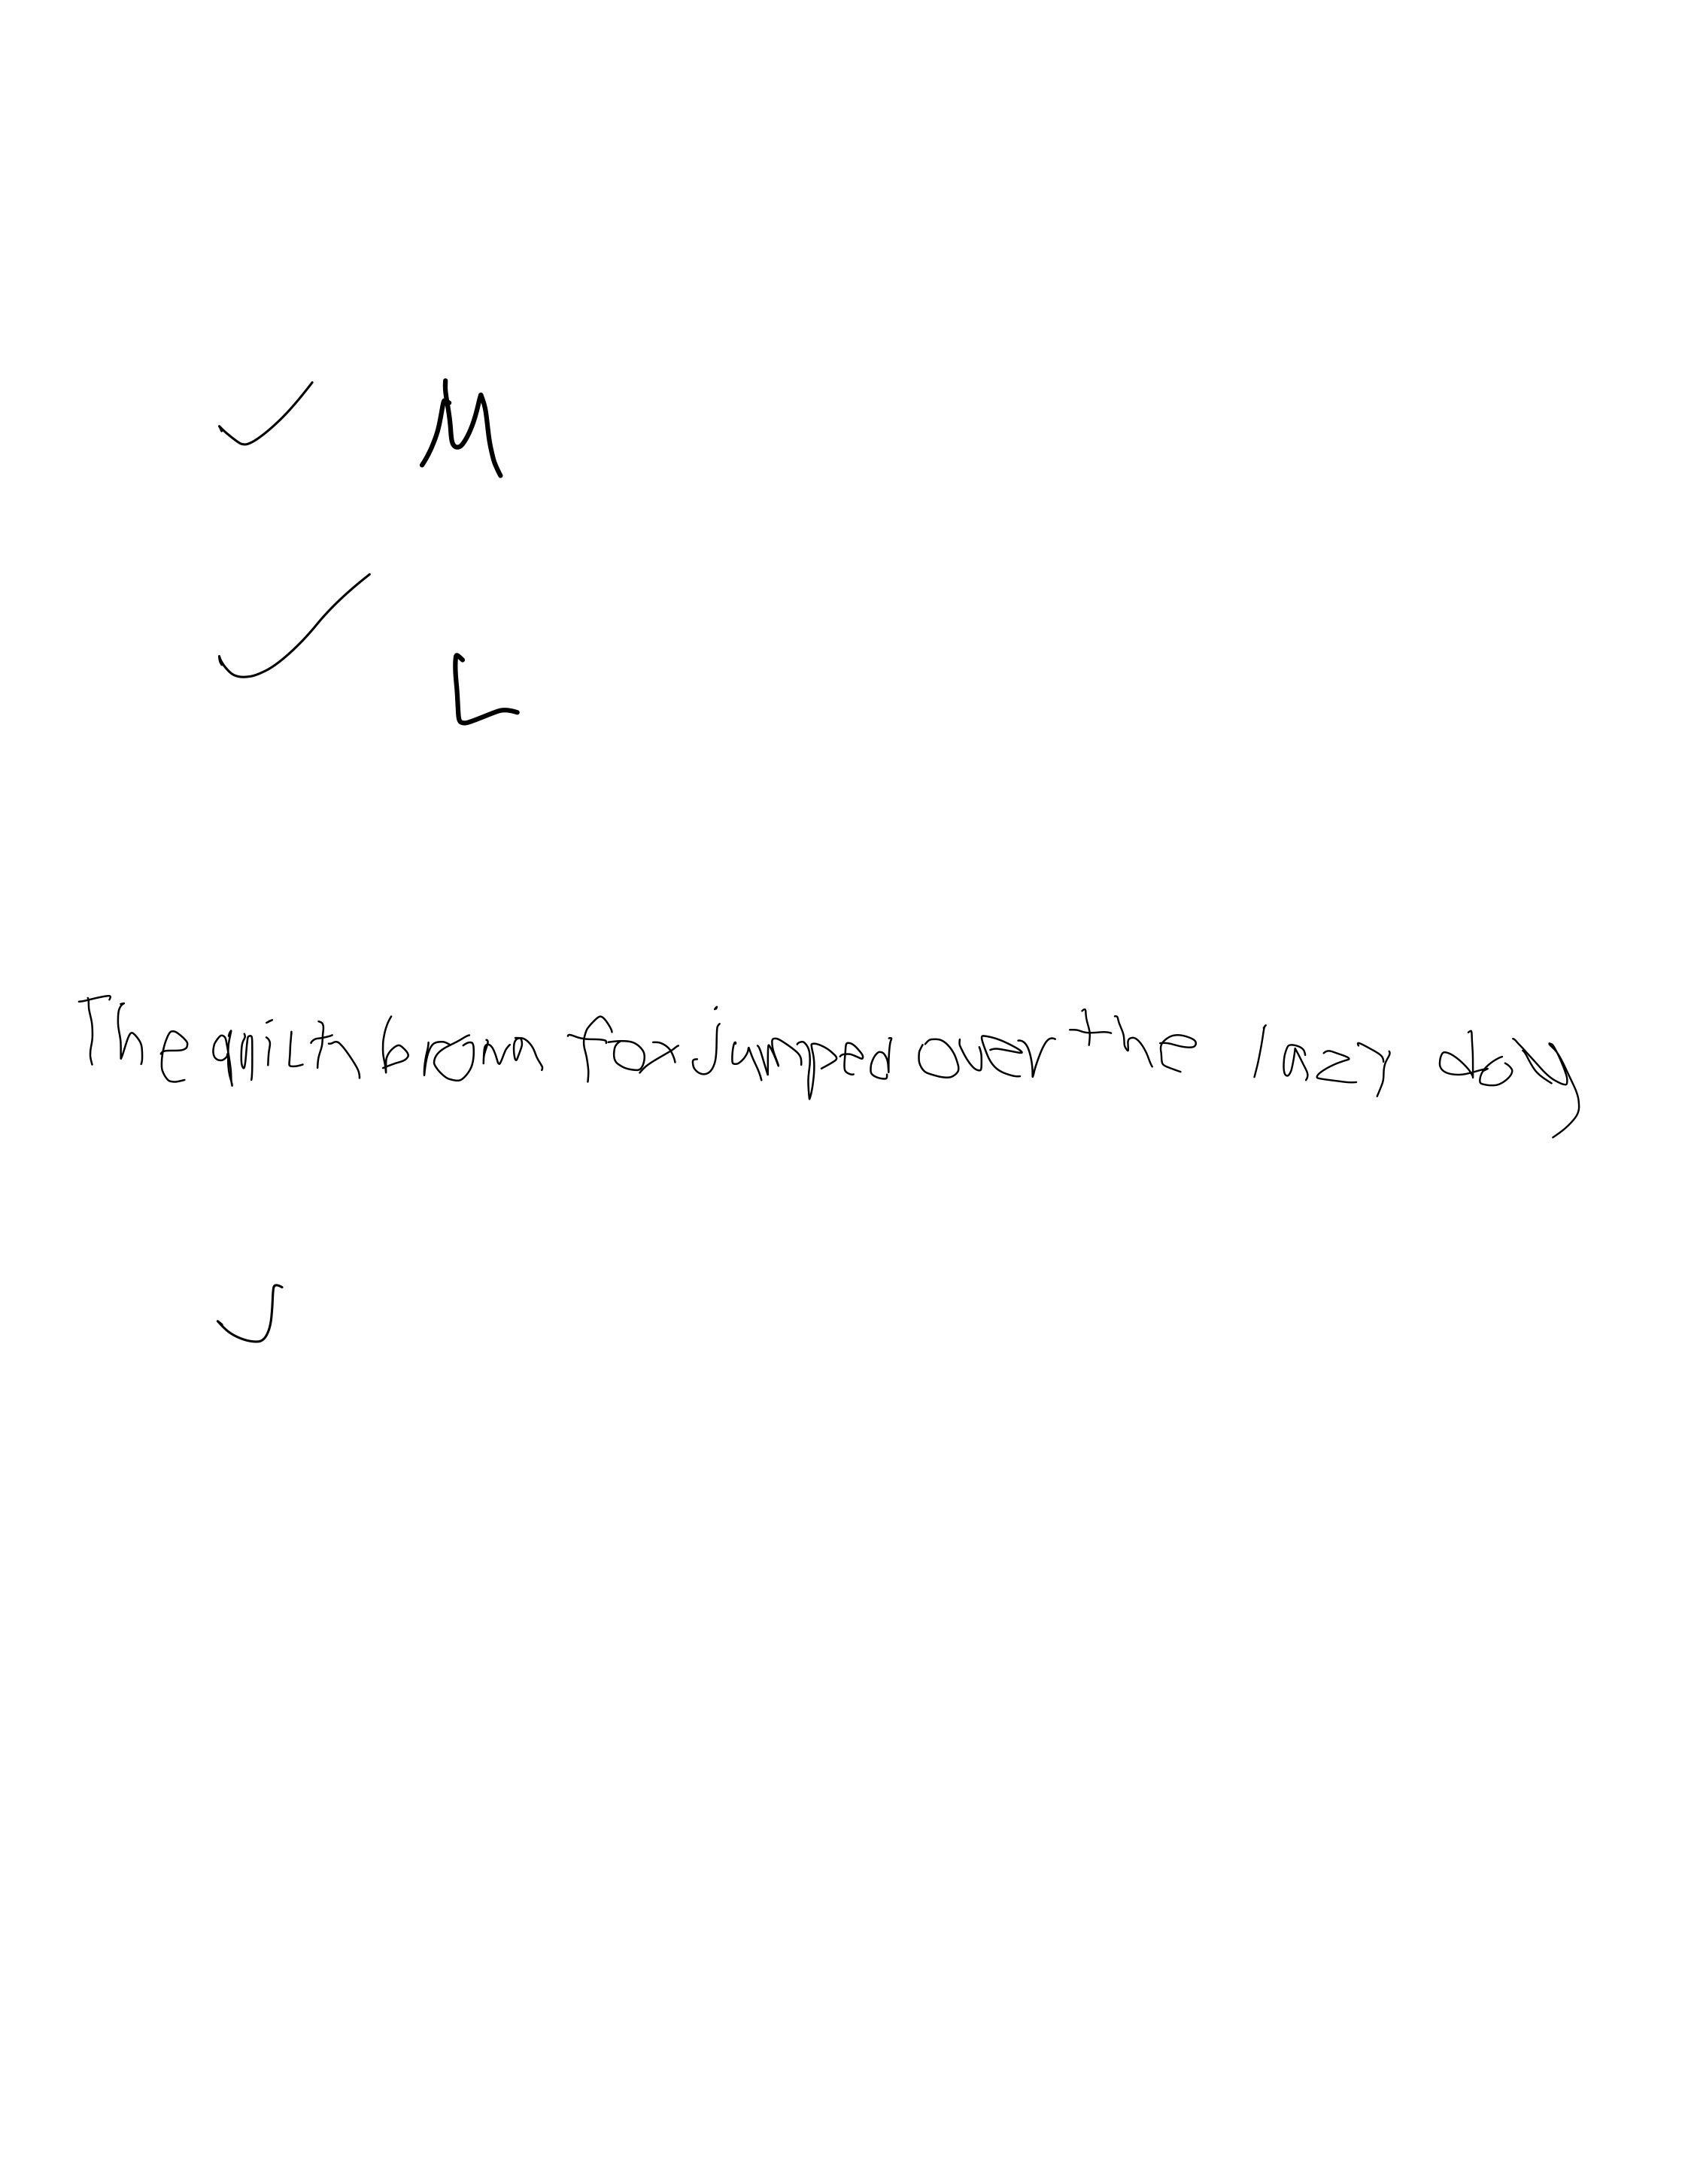 ✓ M
✓ L
The quick brown fox jumped over the lazy dog